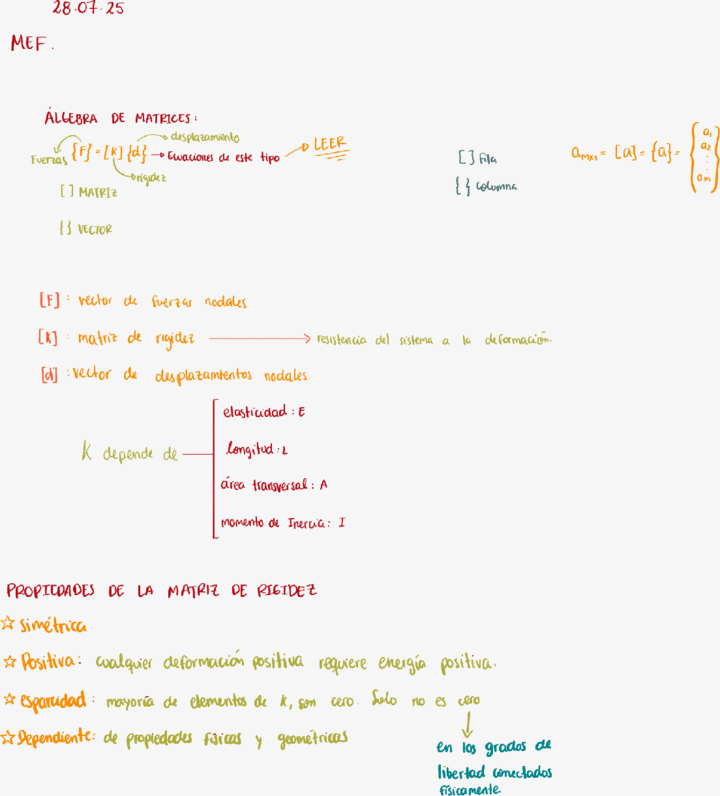 28.07.25
MEF.
ÁLGEBRA DE MATRICES:
desplazamiento
Fuerzas {F} = [K] {d} → Ecuaciones de este tipo → LEER
rigidez
[ ] MATRIZ
{ } VECTOR
[ ] Fila
{ } Columna
a_mx1 = [a] = {a} = { a1 a2 ⋮ am
[F] : vector de fuerzas nodales
[K] : matriz de rigidez → resistencia del sistema a la deformación.
[d] : vector de desplazamientos nodales.
K depende de
elasticidad : E
longitud : L
área transversal : A
momento de Inercia : I
PROPIEDADES DE LA MATRIZ DE RIGIDEZ
☆ simétrica
☆ Positiva: cualquier deformación positiva requiere energía positiva.
☆ esparcidad : mayoría de elementos de K, son cero. Solo no es cero
☆ Dependiente: de propiedades físicas y geométricas
en los grados de
libertad conectados
físicamente.